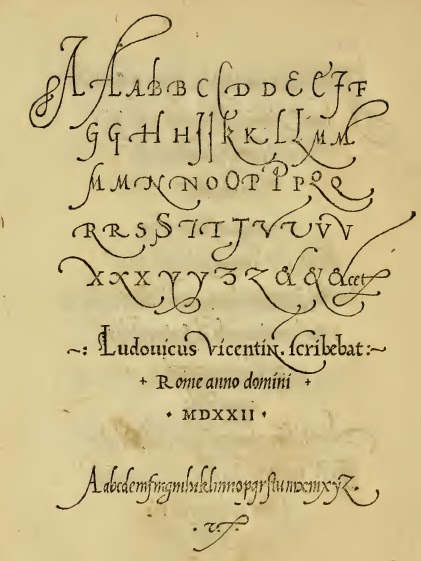 A A A B B C C D D D E E F F
G G H H H I J K K L L M M
M M N N O O P P P Q Q
R R S S T T T V V V V
X X X Y Y Z Z & & & cet
~: Ludouicus Vicentin. scribebat :~
+ Rome anno domini +
• MDXXII •